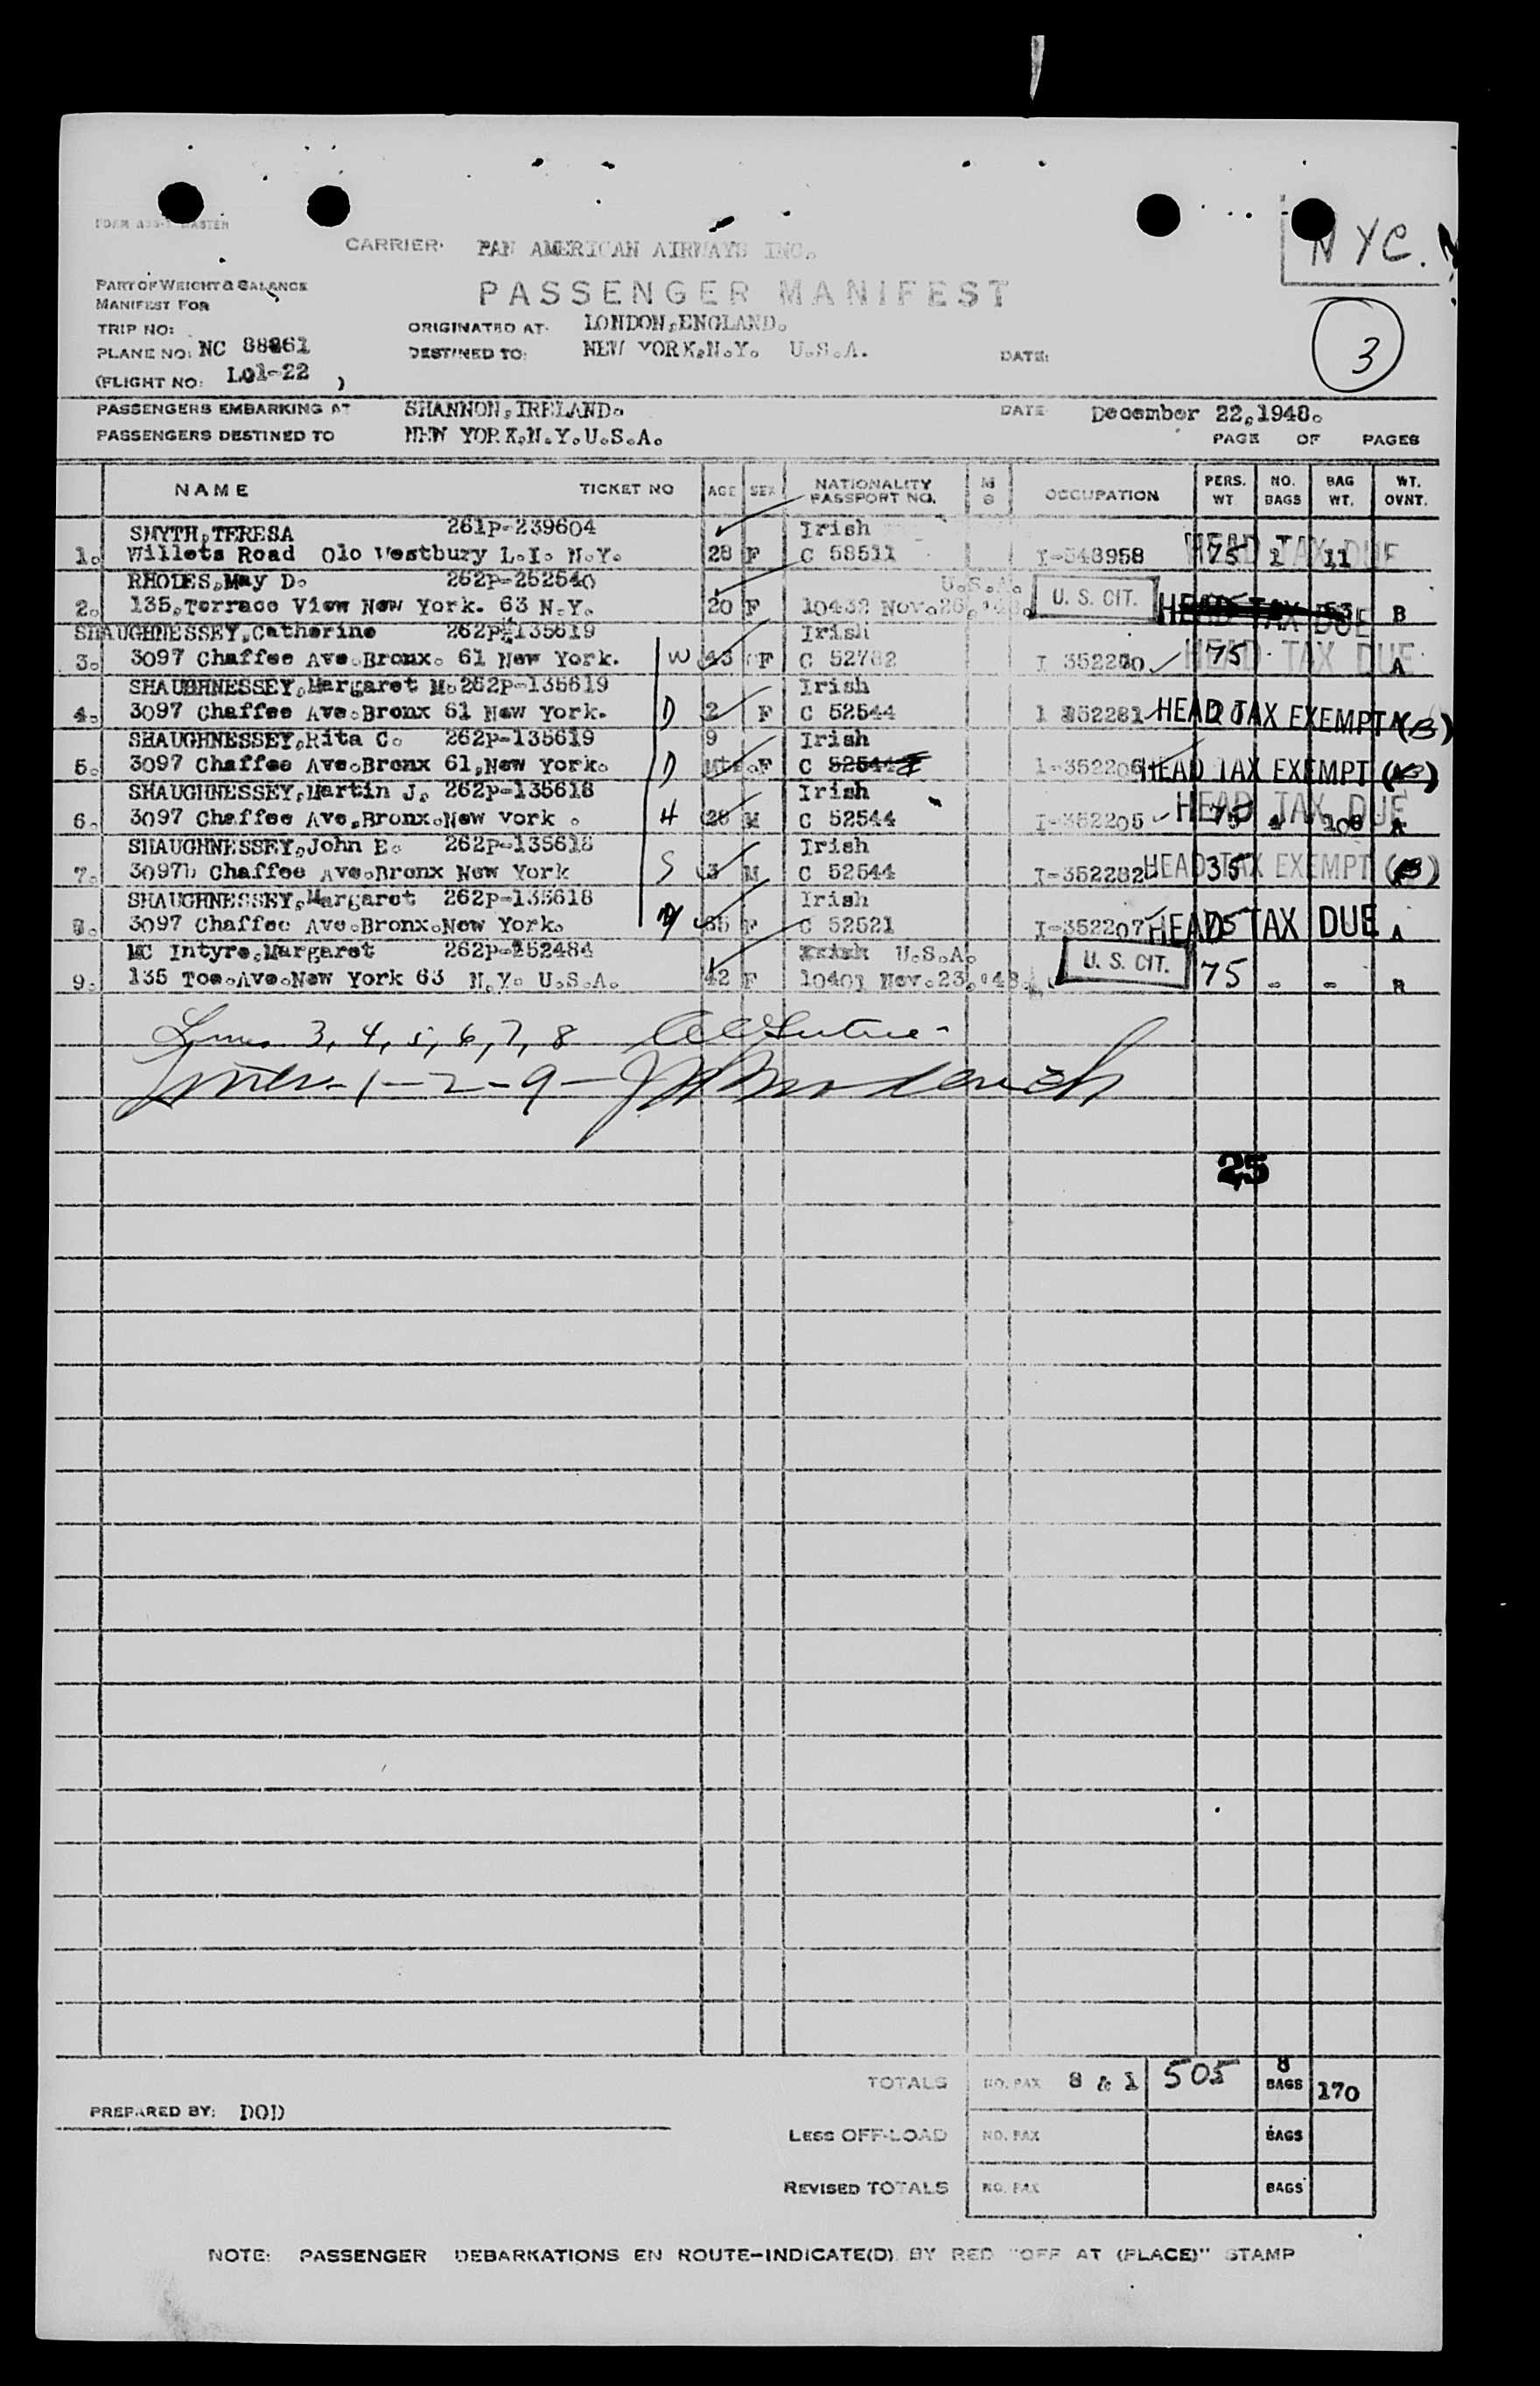 NYC.
FORM
MASTER
CARRIER: PAN AMERICAN AIRWAYS INC.
PART OF WEIGHT & BALANCE
MANIFEST FOR
PASSENGER MANIFEST
3
TRIP NO:
ORIGINATED AT: LONDON,ENGLAND.
PLANE NO: NC 88861
DESTINED TO: NEW YORK,N.Y. U.S.A.
DATE:
(FLIGHT NO: L01-22 )
PASSENGERS EMBARKING AT SHANNON,IRELAND. DATE December 22,1948.
PASSENGERS DESTINED TO NEW YORK,N.Y.U.S.A. PAGE OF PAGES
NAME TICKET NO AGE SEX NATIONALITY PASSPORT NO. M S OCCUPATION PERS. WT. NO. BAGS BAG WT. WT. OVNT.
SMYTH,TERESA 261P-239604 Irish
1. Willets Road Olo Westbury L.I. N.Y. 28 F C 58511 I-548958 HEAD TAX DUE 75 1 11
RHODES,May D. 262P-252540 U.S.A.
2. 135,Terrace View New York. 63 N.Y. 20 F 10432 Nov.26,'48. U. S. CIT. HEAD TAX DUE 53 B
SHAUGHNESSEY,Catherine 262P-135619 Irish
3. 3097 Chaffee Ave.Bronx. 61 New York. W 43 F C 52782 HEAD TAX DUE 75 A
SHAUGHNESSEY,Margaret M.262P-135619 Irish
4. 3097 Chaffee Ave.Bronx 61 New York. D 2 F C 52544 352281 HEAD TAX EXEMPT (B)
SHAUGHNESSEY,Rita C. 262P-135619 9 Irish
5. 3097 Chaffee Ave.Bronx 61,New York. D Mts.F C 52544 1-352206 HEAD TAX EXEMPT
SHAUGHNESSEY,Martin J. 262P-135618 Irish
6. 3097 Chaffee Ave.Bronx.New York . H 28 M C 52544 I-352205 HEAD TAX DUE 75 4 106 A
SHAUGHNESSEY,John E. 262P-135618 Irish
7. 3097b Chaffee Ave.Bronx New York S 3 M C 52544 I-352282 HEAD TAX EXEMPT (B) 35
SHAUGHNESSEY,Margaret 262P-135618 Irish
8. 3097 Chaffee Ave.Bronx.New York. 65 F C 52521 I-352207 HEAD TAX DUE 75 A
MC Intyre,Margaret 262P-252484 Irish U.S.A.
9. 135 Toe.Ave.New York 63 N.Y. U.S.A. 42 F 10401 Nov.23,'48. U. S. CIT. 75 - - B
Lines 3, 4, 5, 6, 7, 8
Lines - 1 - 2 - 9 -
25
TOTALS NO. PAX 8 & 1 505 8 BAGS 170
PREPARED BY: DOD
LESS OFF-LOAD NO. PAX BAGS
REVISED TOTALS NO. PAX BAGS
NOTE: PASSENGER DEBARKATIONS EN ROUTE-INDICATE(D) BY RED "OFF AT (PLACE)" STAMP